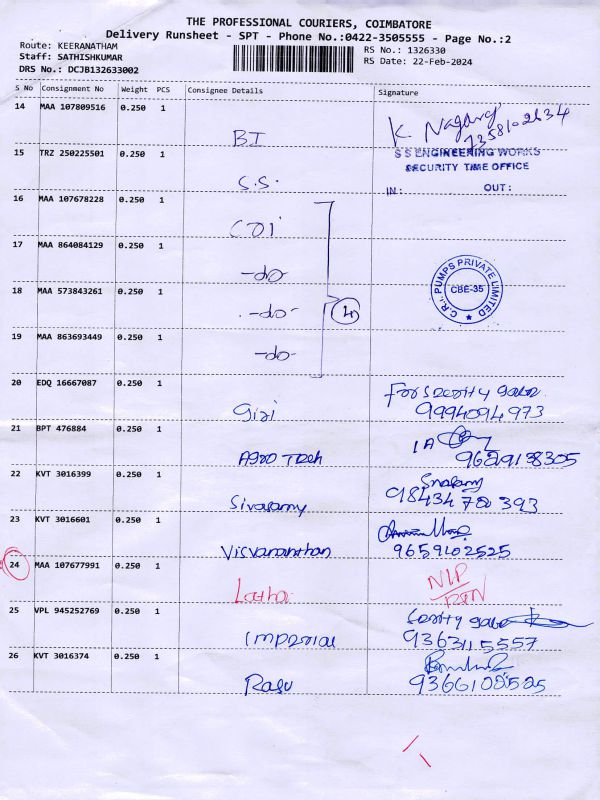 THE PROFESSIONAL COURIERS, COIMBATORE
Delivery Runsheet - SPT - Phone No.:0422-3505555 - Page No.:2
Route: KEERANATHAM
RS No.: 1326330
Staff: SATHISHKUMAR
RS Date: 22-Feb-2024
DRS No.: DCJB132633002
S No Consignment No Weight PCS Consignee Details Signature
14 MAA 107809516 0.250 1
BI
K Nagaraj
7358102634
15 TRZ 250225501 0.250 1
S.S.
S S ENGINEERING WORKS
SECURITY TIME OFFICE
IN: OUT:
16 MAA 107678228 0.250 1
17 MAA 864084129 0.250 1
-do-
C.R.I. PUMPS PRIVATE LIMITED
CBE-35
18 MAA 573843261 0.250 1
-do-
4
19 MAA 863693449 0.250 1
-do-
20 EDQ 16667087 0.250 1
Giri
9994094973
21 BPT 476884 0.250 1
Agro Tech
9629138305
22 KVT 3016399 0.250 1
Sivasamy
23 KVT 3016601 0.250 1
Visvananthan
9659102525
24 MAA 107677991 0.250 1
Latha
N/P
RTN
25 VPL 945252769 0.250 1
Imperial
9363115557
26 KVT 3016374 0.250 1
Rasu